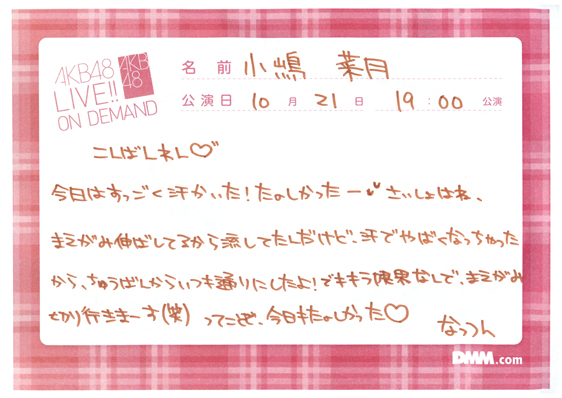 AKB48
LIVE!!
ON DEMAND
AKB
48
名 前 小嶋 菜月
公演日 10 月 21 日 19 : 00 公演
こんばんわん♡
今日はすっごく汗かいた！たのしかったー♥ さいしょはね、
まえがみ伸ばしてるから流してたんだけど、汗でやばくなっちゃった
から、ちゅうばんからいつも通りにしたよ！でもキラ限界なんで、まえがみ
切り行きまーす(笑) ってことで、今日もたのしかった♡
なっつん
DMM.com